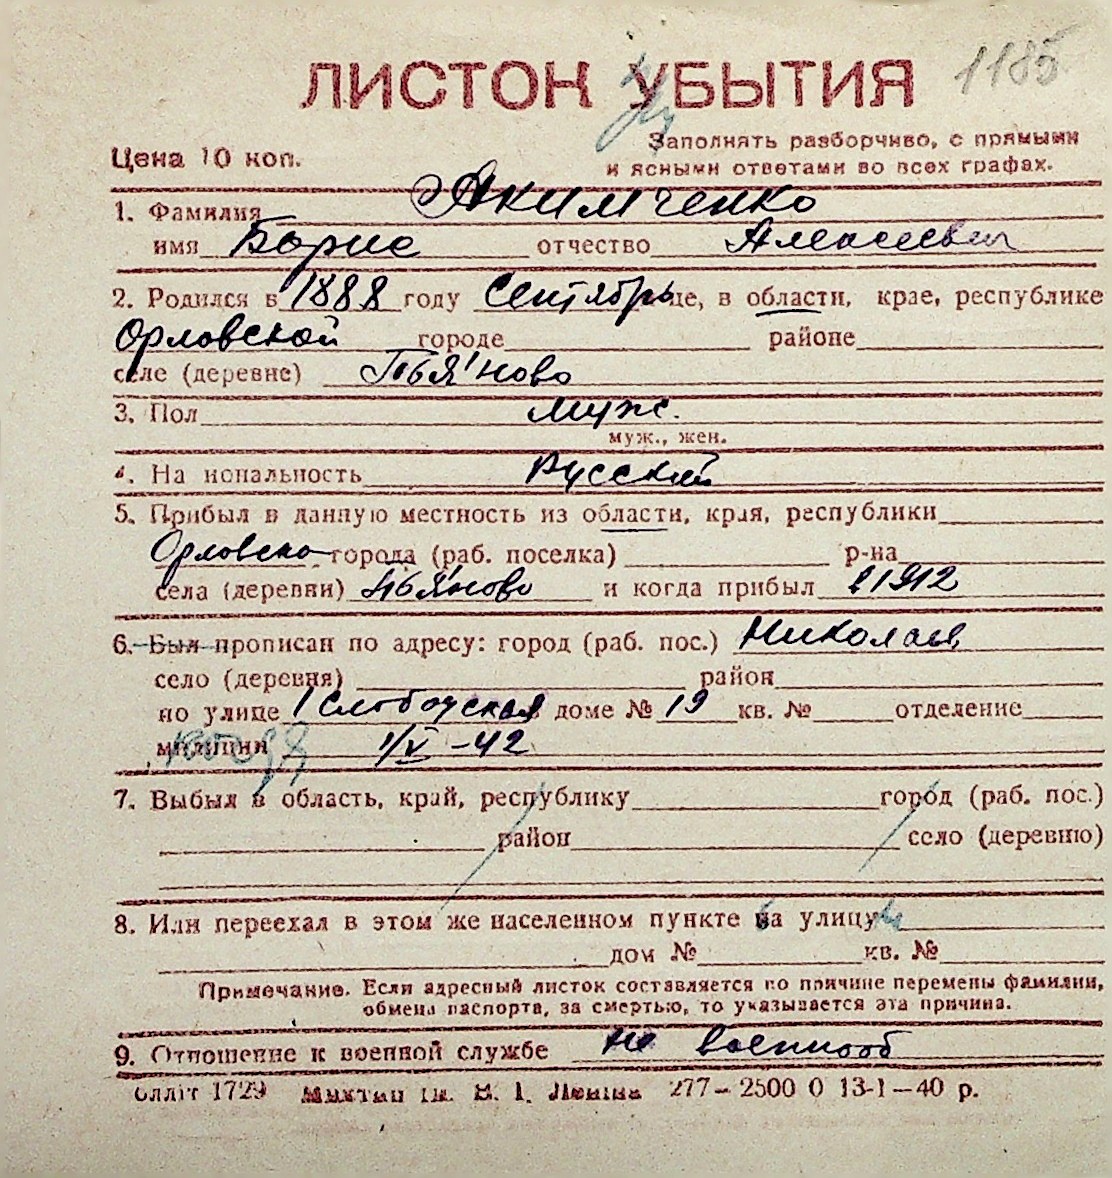 1185
ЛИСТОК УБЫТИЯ
Заполнять разборчиво, с прямыми
Цена 10 коп. и ясными ответами во всех графах.
1. Фамилия Акимченко
имя Борис отчество Алексеевич
2. Родился в 1888 году Сентябрь це, в области, крае, республике
Орловской городе районе
селе (деревне)
3. Пол муж.
муж., жен.
4. Национальность Русский
5. Прибыл в данную местность из области, края, республики
Орловско города (раб. поселка) р-на
села (деревни) и когда прибыл 1912
6. Был прописан по адресу: город (раб. пос.) Николаев
село (деревня) район
по улице 1 Слободская доме № 19 кв. № отделение
милиции 1/V-42
7. Выбыл в область, край, республику город (раб. пос.)
район село (деревню)
8. Или переехал в этом же населенном пункте на улицу
дом № кв. №
Примечание. Если адресный листок составляется по причине перемены фамилии,
обмена паспорта, за смертью, то указывается эта причина.
9. Отношение к военной службе не военнооб
1729 ім. В. І. Леніна 277—2500 0 13-1—40 р.